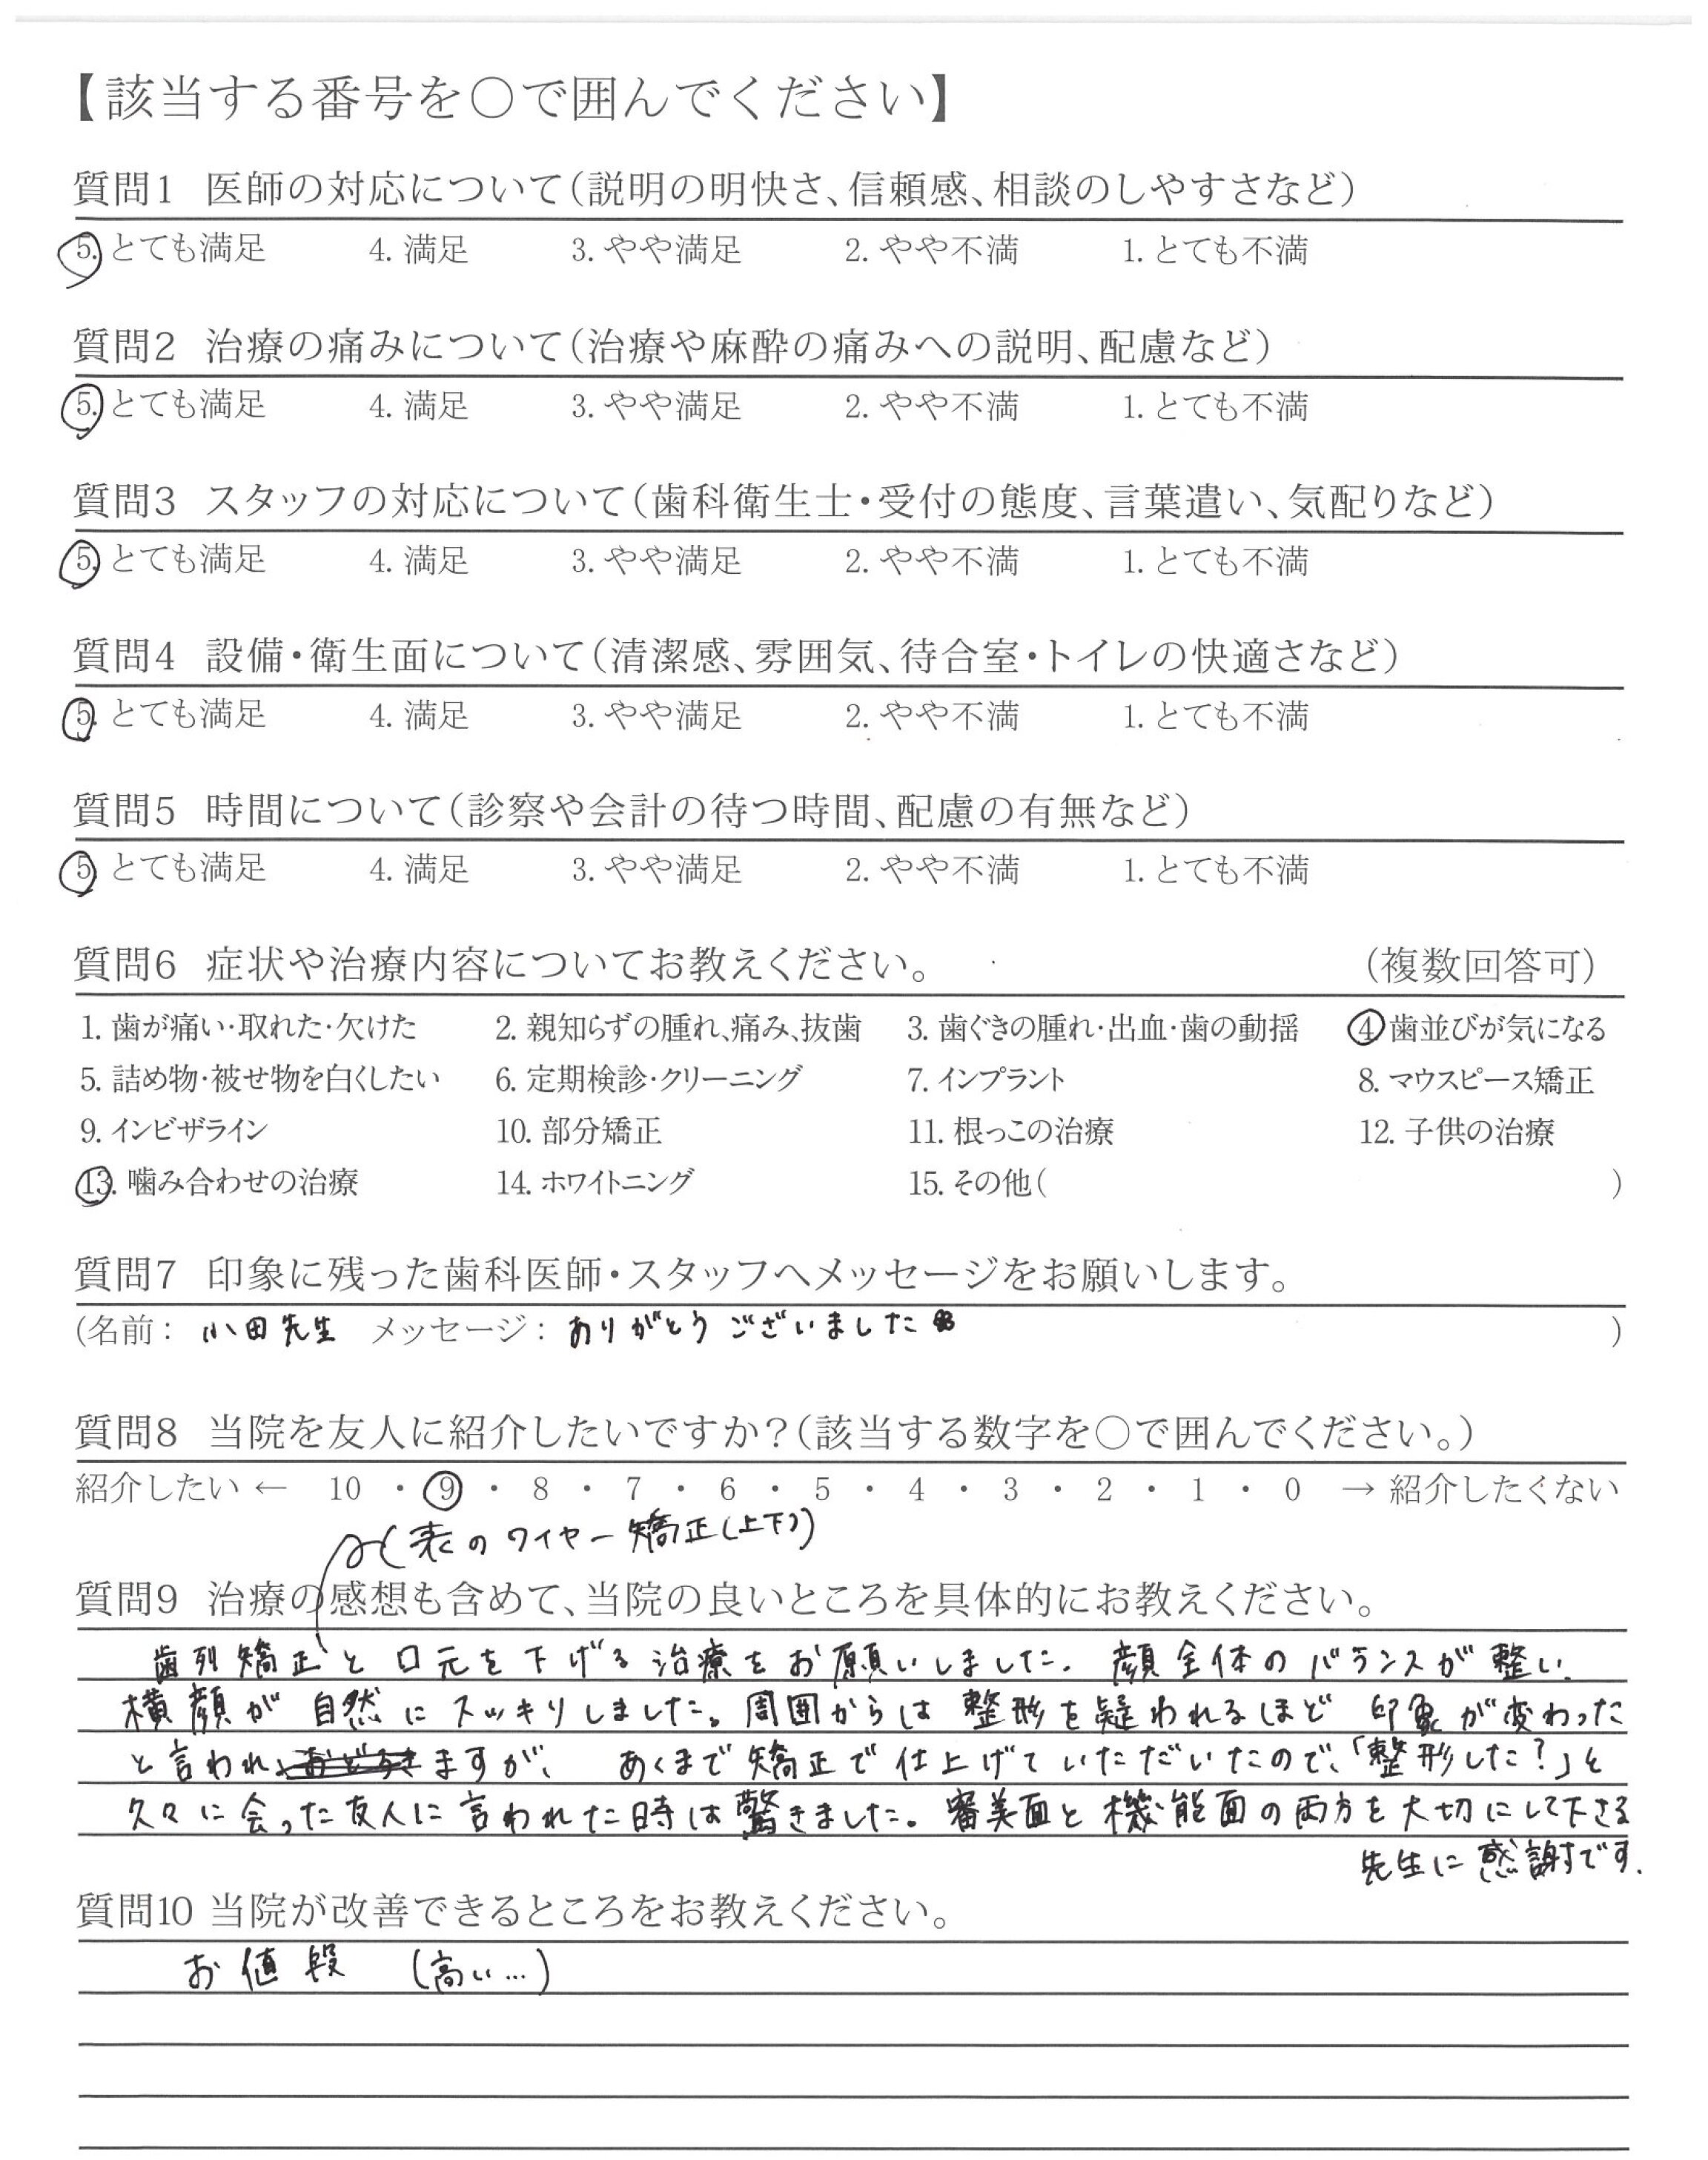 【該当する番号を○で囲んでください】
質問1 医師の対応について(説明の明快さ、信頼感、相談のしやすさなど)
5. とても満足 4. 満足 3. やや満足 2. やや不満 1. とても不満
質問2 治療の痛みについて(治療や麻酔の痛みへの説明、配慮など)
5. とても満足 4. 満足 3. やや満足 2. やや不満 1. とても不満
質問3 スタッフの対応について(歯科衛生士・受付の態度、言葉遣い、気配りなど)
5. とても満足 4. 満足 3. やや満足 2. やや不満 1. とても不満
質問4 設備・衛生面について(清潔感、雰囲気、待合室・トイレの快適さなど)
5. とても満足 4. 満足 3. やや満足 2. やや不満 1. とても不満
質問5 時間について(診察や会計の待つ時間、配慮の有無など)
5 とても満足 4. 満足 3. やや満足 2. やや不満 1. とても不満
質問6 症状や治療内容についてお教えください。 (複数回答可)
1. 歯が痛い・取れた・欠けた 2. 親知らずの腫れ、痛み、抜歯 3. 歯ぐきの腫れ・出血・歯の動揺 4 歯並びが気になる
5. 詰め物・被せ物を白くしたい 6. 定期検診・クリーニング 7. インプラント 8. マウスピース矯正
9. インビザライン 10. 部分矯正 11. 根っこの治療 12. 子供の治療
13. 噛み合わせの治療 14. ホワイトニング 15. その他( )
質問7 印象に残った歯科医師・スタッフへメッセージをお願いします。
(名前: 小田先生 メッセージ: ありがとうございました )
質問8 当院を友人に紹介したいですか?(該当する数字を○で囲んでください。)
紹介したい ← 10 ・ 9 ・ 8 ・ 7 ・ 6 ・ 5 ・ 4 ・ 3 ・ 2 ・ 1 ・ 0 → 紹介したくない
(表のワイヤー矯正(上下))
質問9 治療の感想も含めて、当院の良いところを具体的にお教えください。
歯列矯正と口元を下げる治療をお願いしました。顔全体のバランスが整い、
横顔が自然にスッキリしました。周囲からは整形を疑われるほど印象が変わった
と言われますが、あくまで矯正で仕上げていただいたので、「整形した?」と
久々に会った友人に言われた時は驚きました。審美面と機能面の両方を大切にして下さる
先生に感謝です。
質問10 当院が改善できるところをお教えください。
お値段 (高い…)